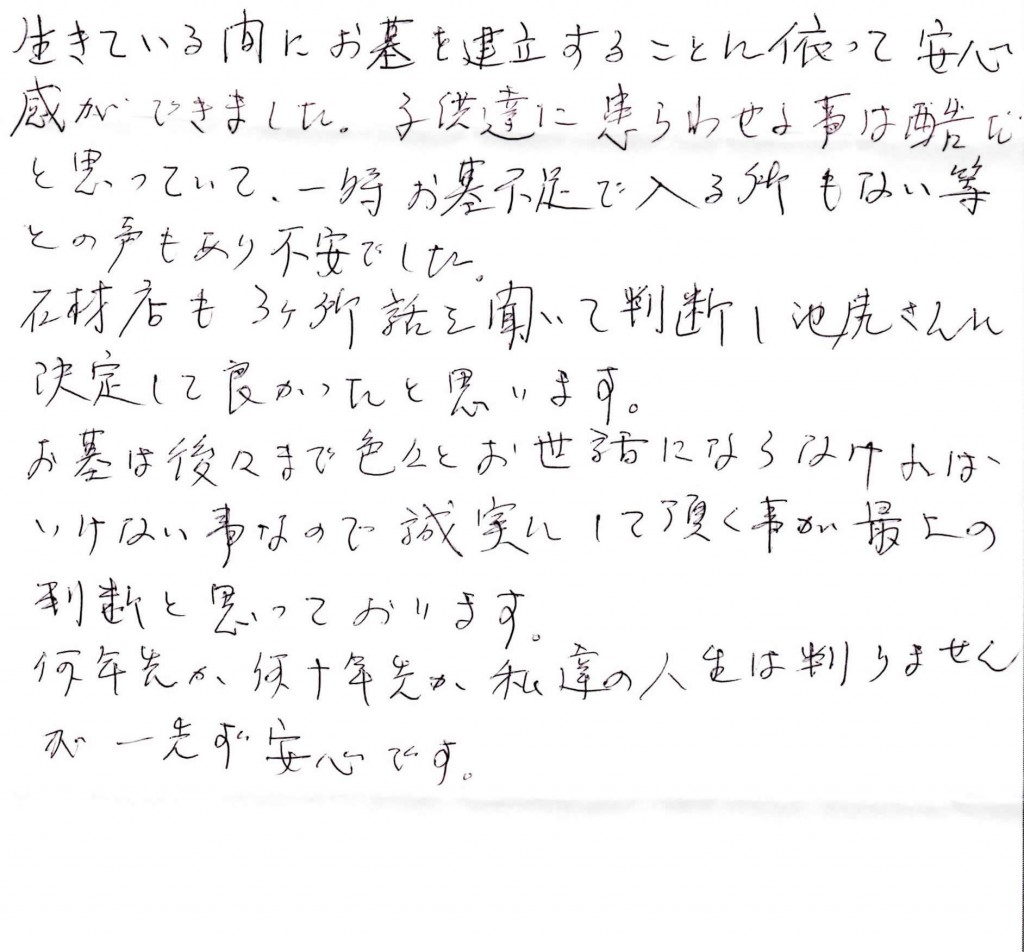 生きている間にお墓を建立することに依って安心
感ができました。子供達に患らわせる事は酷だ
と思っていて、一時お墓不足で入る所もない等
との声もあり不安でした。
石材店も3ヶ所話を聞いて判断し池尻さんに
決定して良かったと思います。
お墓は後々まで色々とお世話にならなければ、
いけない事なので誠実にして頂く事が最上の
判断と思っております。
何年先か、何十年先か、私達の人生は判りません
が一先ず安心です。